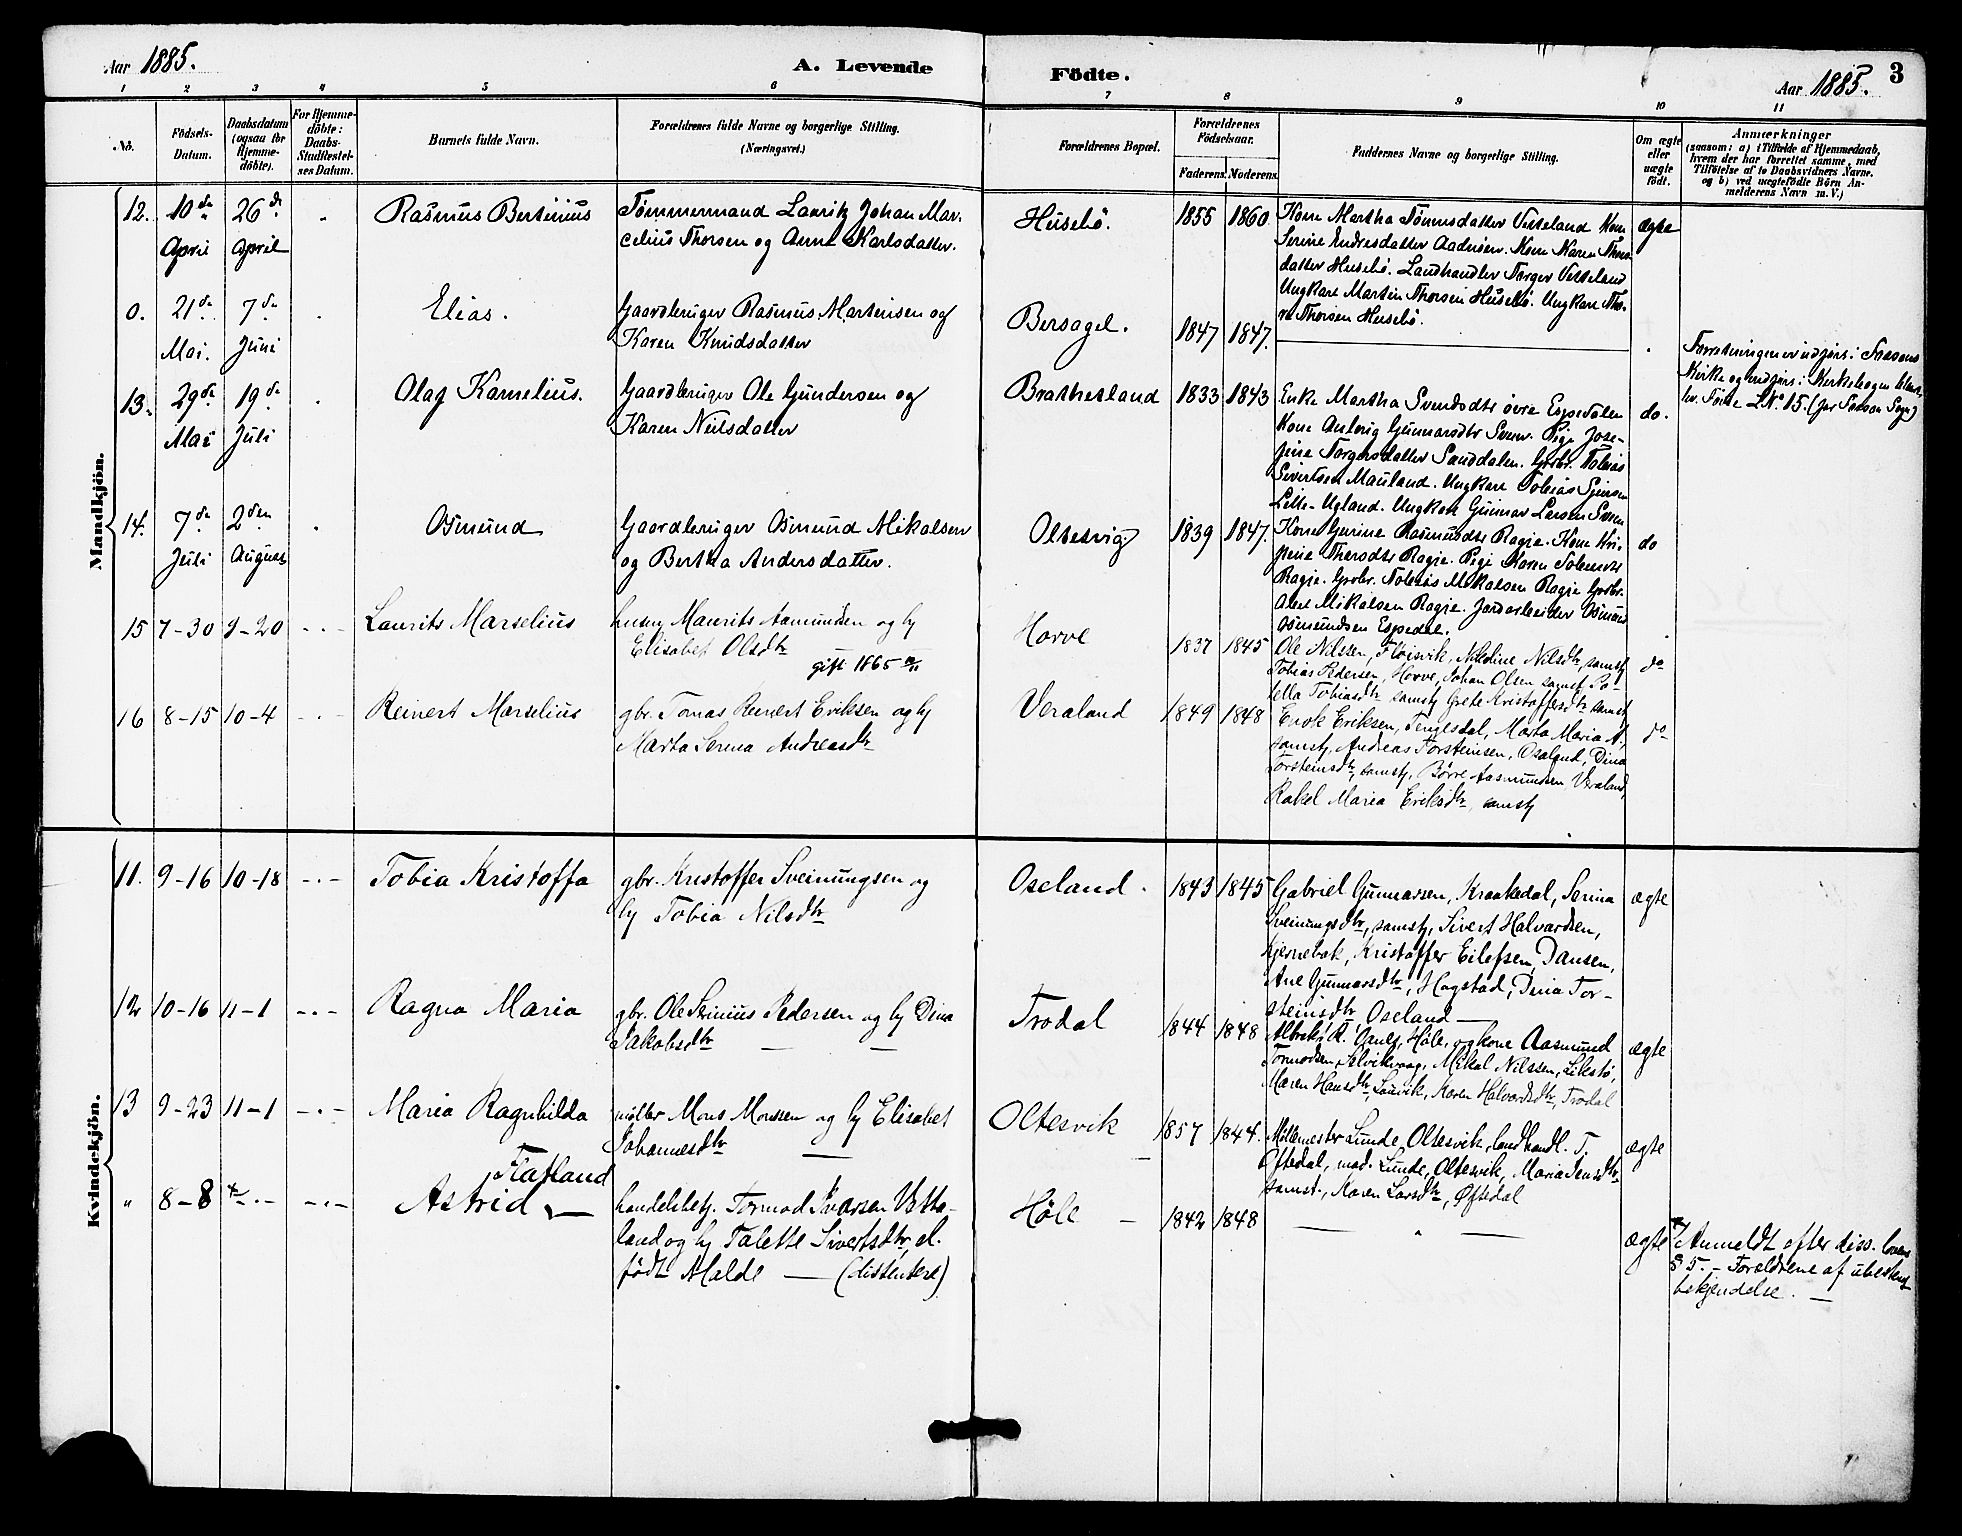 Aar 1885.
A. Levende
Födte.
Aar 1885.
3
1 2 3 4 5 6 7 8 9 10 11
No.
Födsels-
Datum.
Daabsdatum
(ogsaa for
Hjemme-
döbte).
For Hjemme-
döbte:
Daabs-
Stadfestel-
ses Datum.
Barnets fulde Navn.
Forældrenes fulde Navne og borgerlige Stilling.
(Næringsvei.)
Forældrenes Bopæl.
Forældrenes
Födselsaar.
Faderens. Moderens.
Faddernes Navne og borgerlige Stilling.
Om ægte
eller
uægte
født.
Anmærkninger
(saasom: a) i Tilfælde af Hjemmedaab,
hvem der har forrettet samme, med
Tilföielse af to Daabsvidners Navne,
og b) ved uægtefödte Börn An-
melderens Navn m. V.)
Mandkjön.
12.
10de
April
26de
April
Rasmus Bertinius
Tømmermand Lauritz Johan Mar-
celius Thorsen og Anne Karlsdatter.
Husebö.
1855 1860
Kone Martha Tönnesdatter Vetteland Kone
Serine Endresdatter Aadnöen. Kone Karen Thors-
datter Husebö. Landhandler Torger Vetteland
Ungkarl Martin Thorsen Husebö. Ungkarl Tho-
re Thorsen Husebö.
ægte
0.
21de
Mai.
7de
Juni
Elias.
Gaardbruger Rasmus Martinsen og
Karen Knudsdatter
Bersagel.
1847 1847.
Forretningen er udført i Fossans
Kirke og indført i Kirkebogen
L.No. 15. (for Fossan Sogn)
13.
29de
Mai
19de
Juli
Olaf Kornelius.
Gaardbruger Ole Gundersen og
Karen Neilsdatter
Brattetland
1833 1843
Enke Martha Svendsdtr övre Espedalen
Kone Anbørig Gunnarsdtr Svenn. Pige Jose-
fine Torgersdatter Sanddalen. Grbr. Tobias
Sivertsen Mauland. Ungkarl Tobias
Lille-Ugland. Ungkarl Gunnar Larsen Svenn
do.
14.
7de
Juli
2den
August
Osmund
Gaardbruger Osmund Mikalsen
og Bertha Andersdatter.
Oltesvig.
1839 1847.
Kone Gurine Rasmusdtr Ragje. Kone
Ragje. Pige Karen
Ragje. Grbr. Tobias Mikalsen Ragje Grbr.
Abel Mikalsen Ragje. Jordarbeider Osmund
Osmundsen Espedal.
do
15
7-30
9-20
-.-
Laurits Marselius
husmd Maurits Aamundsen og hu
Elisabet Olsdtr
gift 1865
Horve
1837 1845
Ole Nilssen, Fløisvik, Nikoline Nilsdtr, samst,
Tobias Pedersen, Horve, Johan Olsen samst,
Tobiasdtr samst, Grete Kristoffersdtr samst,
do
16
8-15
10-4
-.-
Reinert Marselius
gbr. Tomas Reinert Eriksen og hu
Marta Serina Andreasdtr
Veraland
1849 1848
Enok Eriksen, Tengesdal, Marta Maria A.
samst, Andreas Torsteinsen, Osaland, Dina
Torsteinsdtr, samst, Börre Aasmundsen Veraland,
Rakel Maria Eriksdtr, samst
do
Kvindekjön.
11.
9-16
10-18
-.-
Tobia Kristoffa
gbr. Kristoffer Sveinungsen og
hu Tobia Nilsdtr
Oseland.
1843 1845
Gabriel Gunnarsen, Kraakedal, Serina
Sveinungsdtr, samst, Sivert Halvardsen,
Kjernebæk, Kristoffer Eilefsen,
Ane Gunnarsdtr, Hogstad, Dina Tor-
steinsdtr Oseland —
ægte
12
10-16
11-1
-.-
Ragna Maria
gbr. Ole Serinius Pedersen og hu Dina
Jakobsdtr — —
Trodal
1844 1848
Høle, og kone Aasmund
Tormodsen, Selvikvaag, Mikal Nilssen,
Maren Hansdtr, Lauvik, Karen Halvardsdtr, Trodal
ægte
13
9-23
11-1
-.-
Maria Ragnhilda
møller Mons Monssen og hu Elisabet
Johannesdtr —
Oltesvik
1857 1844.
Møllemester Lunde, Oltesvik, landhandl. T.
Oftedal, mad. Lunde, Oltesvik, Maria Jensdtr
samst., Karen Larsdtr, Øftedal
ægte
"
8-8
-.-
Flatland
Astrid —
handelsbetj. Tormod Ivarsen Vetta-
land og hu Talette Sivertsdtr,
født Malde — (dissentere)
Høle —
1842 1848
— " —
ægte
Anmeldt efter diss. lovens
§ 5. - Forældrene af ubestemt
bekjendelse. —